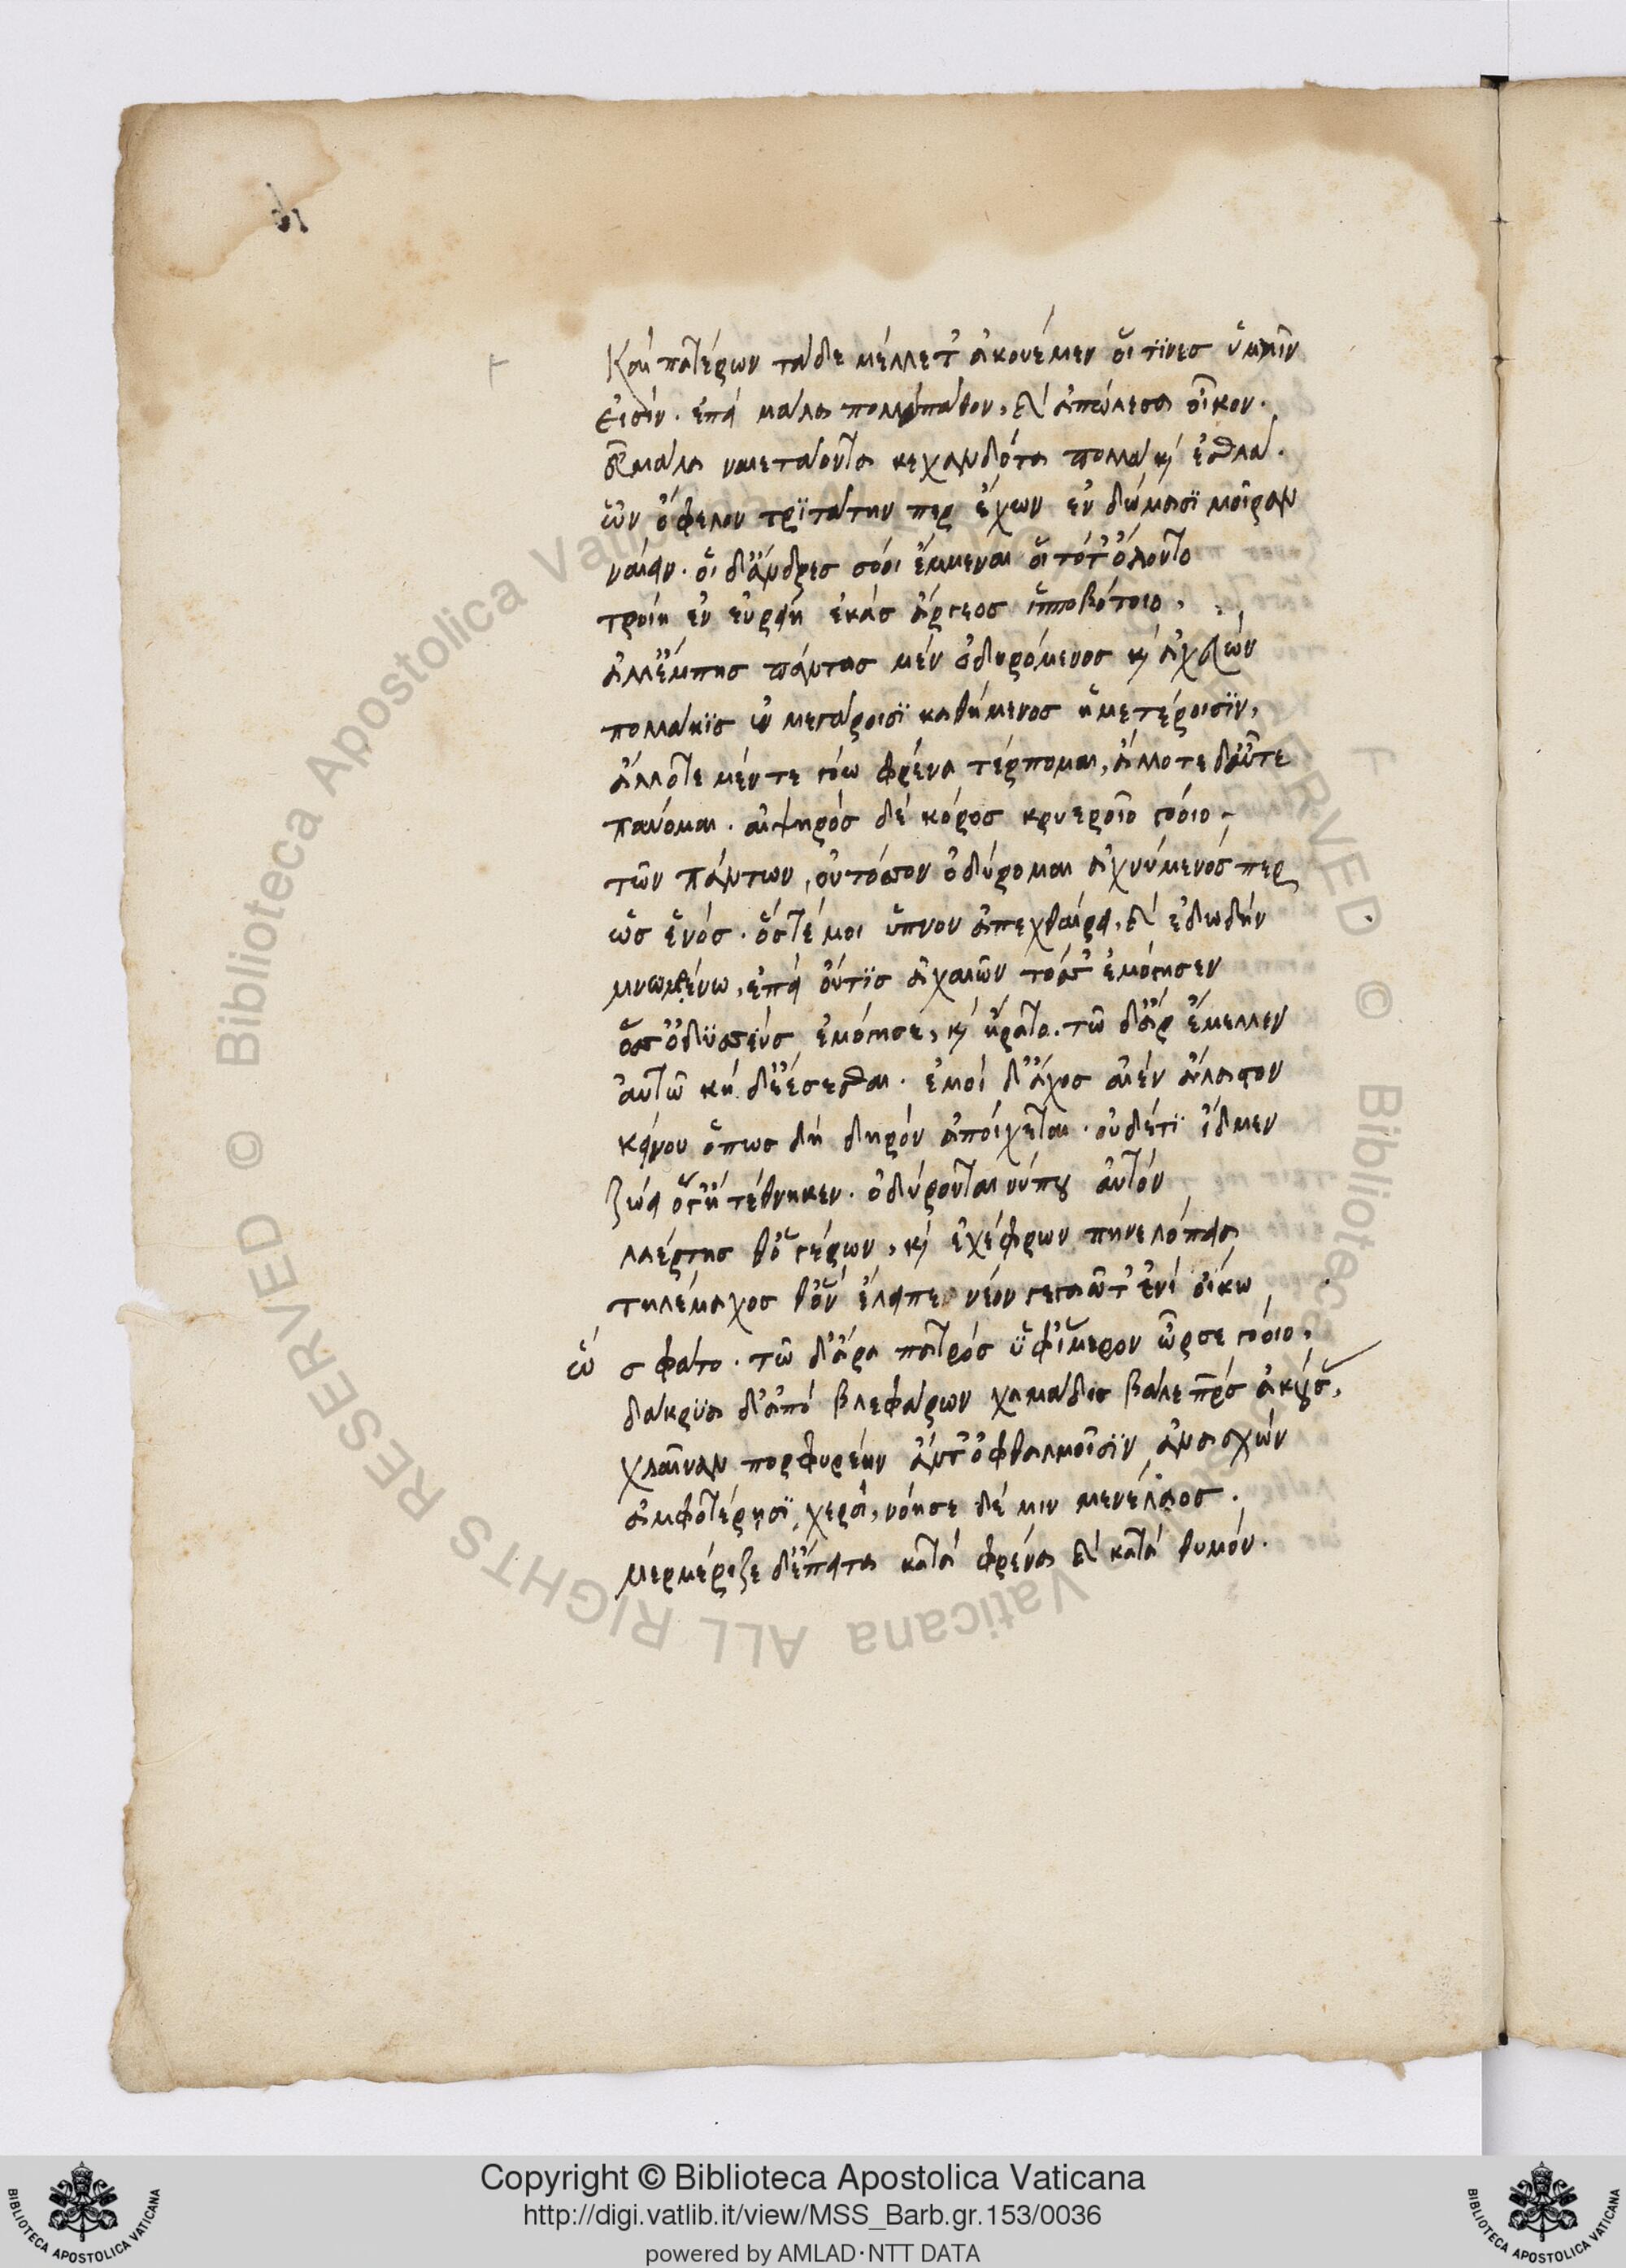 Καὶ πατέρων τάδε μέλλετ' ἀκουέμεν οἵ τινες ὑμῖν
εἰσίν. ἐπεὶ μάλα πολλὰ πάθον, καὶ ἀπώλεσα οἶκον.
εὖ μάλα ναιετάοντα κεχανδότα πολλὰ καὶ ἐσθλά.
ὧν ὄφελον τριτάτην περ ἔχων ἐν δώμασι μοῖραν
ναίειν. οἱ δ' ἄνδρες σόοι ἔμμεναι οἳ τότ' ὄλοντο
τροίη ἐν εὐρείη ἑκὰς ἄργεος ἱπποβότοιο.
ἀλλ' ἔμπης πάντας μὲν ὀδυρόμενος καὶ ἀχεύων
πολλάκις ἐν μεγάροισι καθήμενος ἡμετέροισιν,
ἄλλοτε μέν τε γόω φρένα τέρπομαι, ἄλλοτε δ' αὖτε
παύομαι. αἰψηρὸς δὲ κόρος κρυεροῖο γόοιο,
τῶν πάντων, οὐ τόσσον ὀδύρομαι ἀχνύμενός περ
ὡς ἑνός. ὅστέ μοι ὕπνον ἀπεχθαίρει, καὶ ἐδωδὴν
μνωμένω, ἐπεὶ οὔτις ἀχαιῶν τόσσ' ἐμόγησεν
ὅσσ' ὀδυσσεὺς ἐμόγησε, καὶ ἤρατο. τῶ δ' ἄρ' ἔμελλεν
αὐτῶ κήδε' ἔσεσθαι. ἐμοὶ δ' ἄχος αἰὲν ἄλαστον
κείνου ὅπως δὴ δηρὸν ἀποίχεται. οὐδέ τι ἴδμεν
ζώει ὅγ' ἢ τέθνηκεν. ὀδύρονταί νύ που αὐτὸν
λαέρτης θ' ὁ γέρων, καὶ ἐχέφρων πηνελόπεια
τηλέμαχός θ' ὃν ἔλειπε νέον γεγαῶτ' ἐνὶ οἴκω
ὣς φάτο. τῶ δ' ἄρα πατρὸς ὑφ' ἵμερον ὦρσε γόοιο,
δάκρυα δ' ἀπὸ βλεφάρων χαμάδις βάλε πατρὸς ἀκούσας,
χλαῖναν πορφυρέην ἄντ' ὀφθαλμοῖσιν ἀνασχὼν
ἀμφοτέρησι χερσί, νόησε δέ μιν μενέλαος.
μερμήριξε δ' ἔπειτα κατὰ φρένα καὶ κατὰ θυμόν.
Copyright © Biblioteca Apostolica Vaticana
http://digi.vatlib.it/view/MSS_Barb.gr.153/0036
powered by AMLAD·NTT DATA
BIBLIOTECA APOSTOLICA VATICANA
BIBLIOTECA APOSTOLICA VATICANA
© Biblioteca Apostolica Vaticana ALL RIGHTS RESERVED